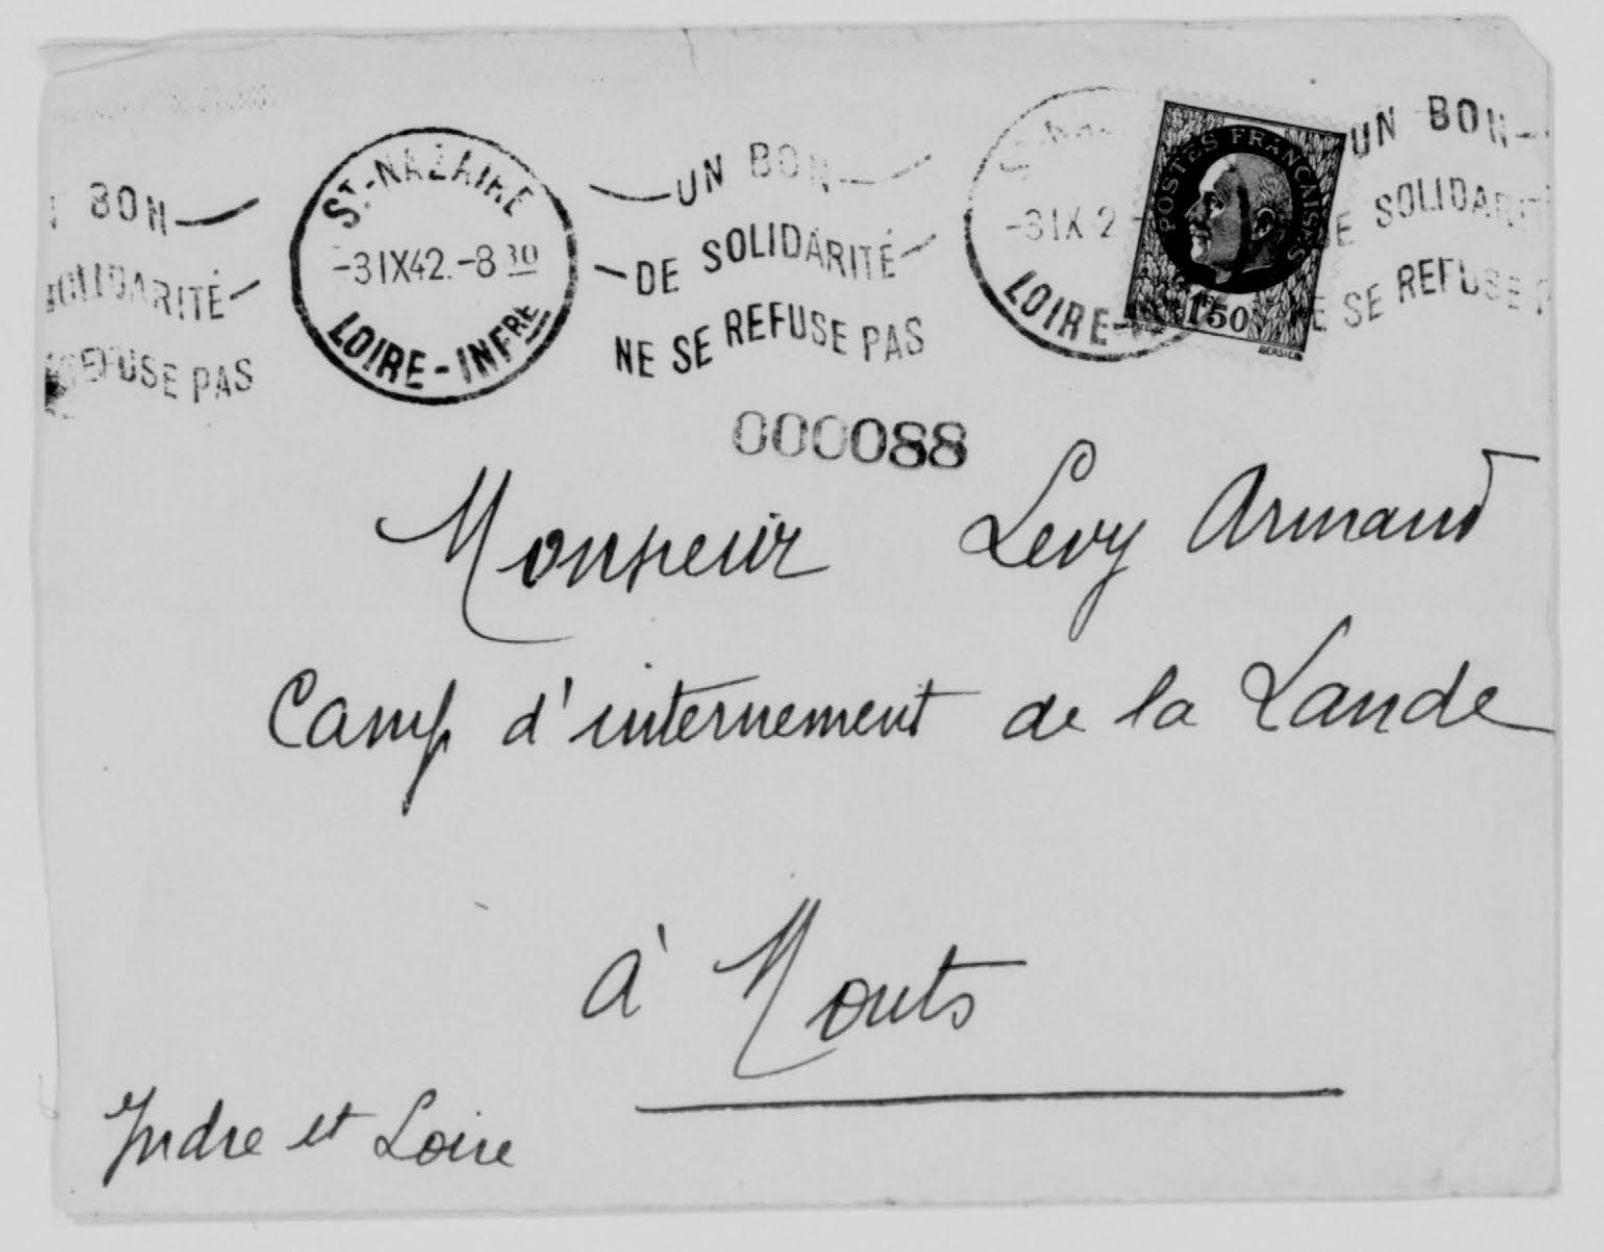 BON
SOLIDARITÉ
REFUSE PAS
ST-NAZAIRE
-3 IX 42.-8 30
LOIRE-INFRE
UN BON
DE SOLIDARITÉ
NE SE REFUSE PAS
-3 IX 2
LOIRE-
POSTES FRANÇAISES
1F50
BERSIER
UN BON
DE SOLIDARITÉ
NE SE REFUSE P
000088
Monsieur Levy Armand
Camp d'internement de la Lande
à Monts
Indre et Loire